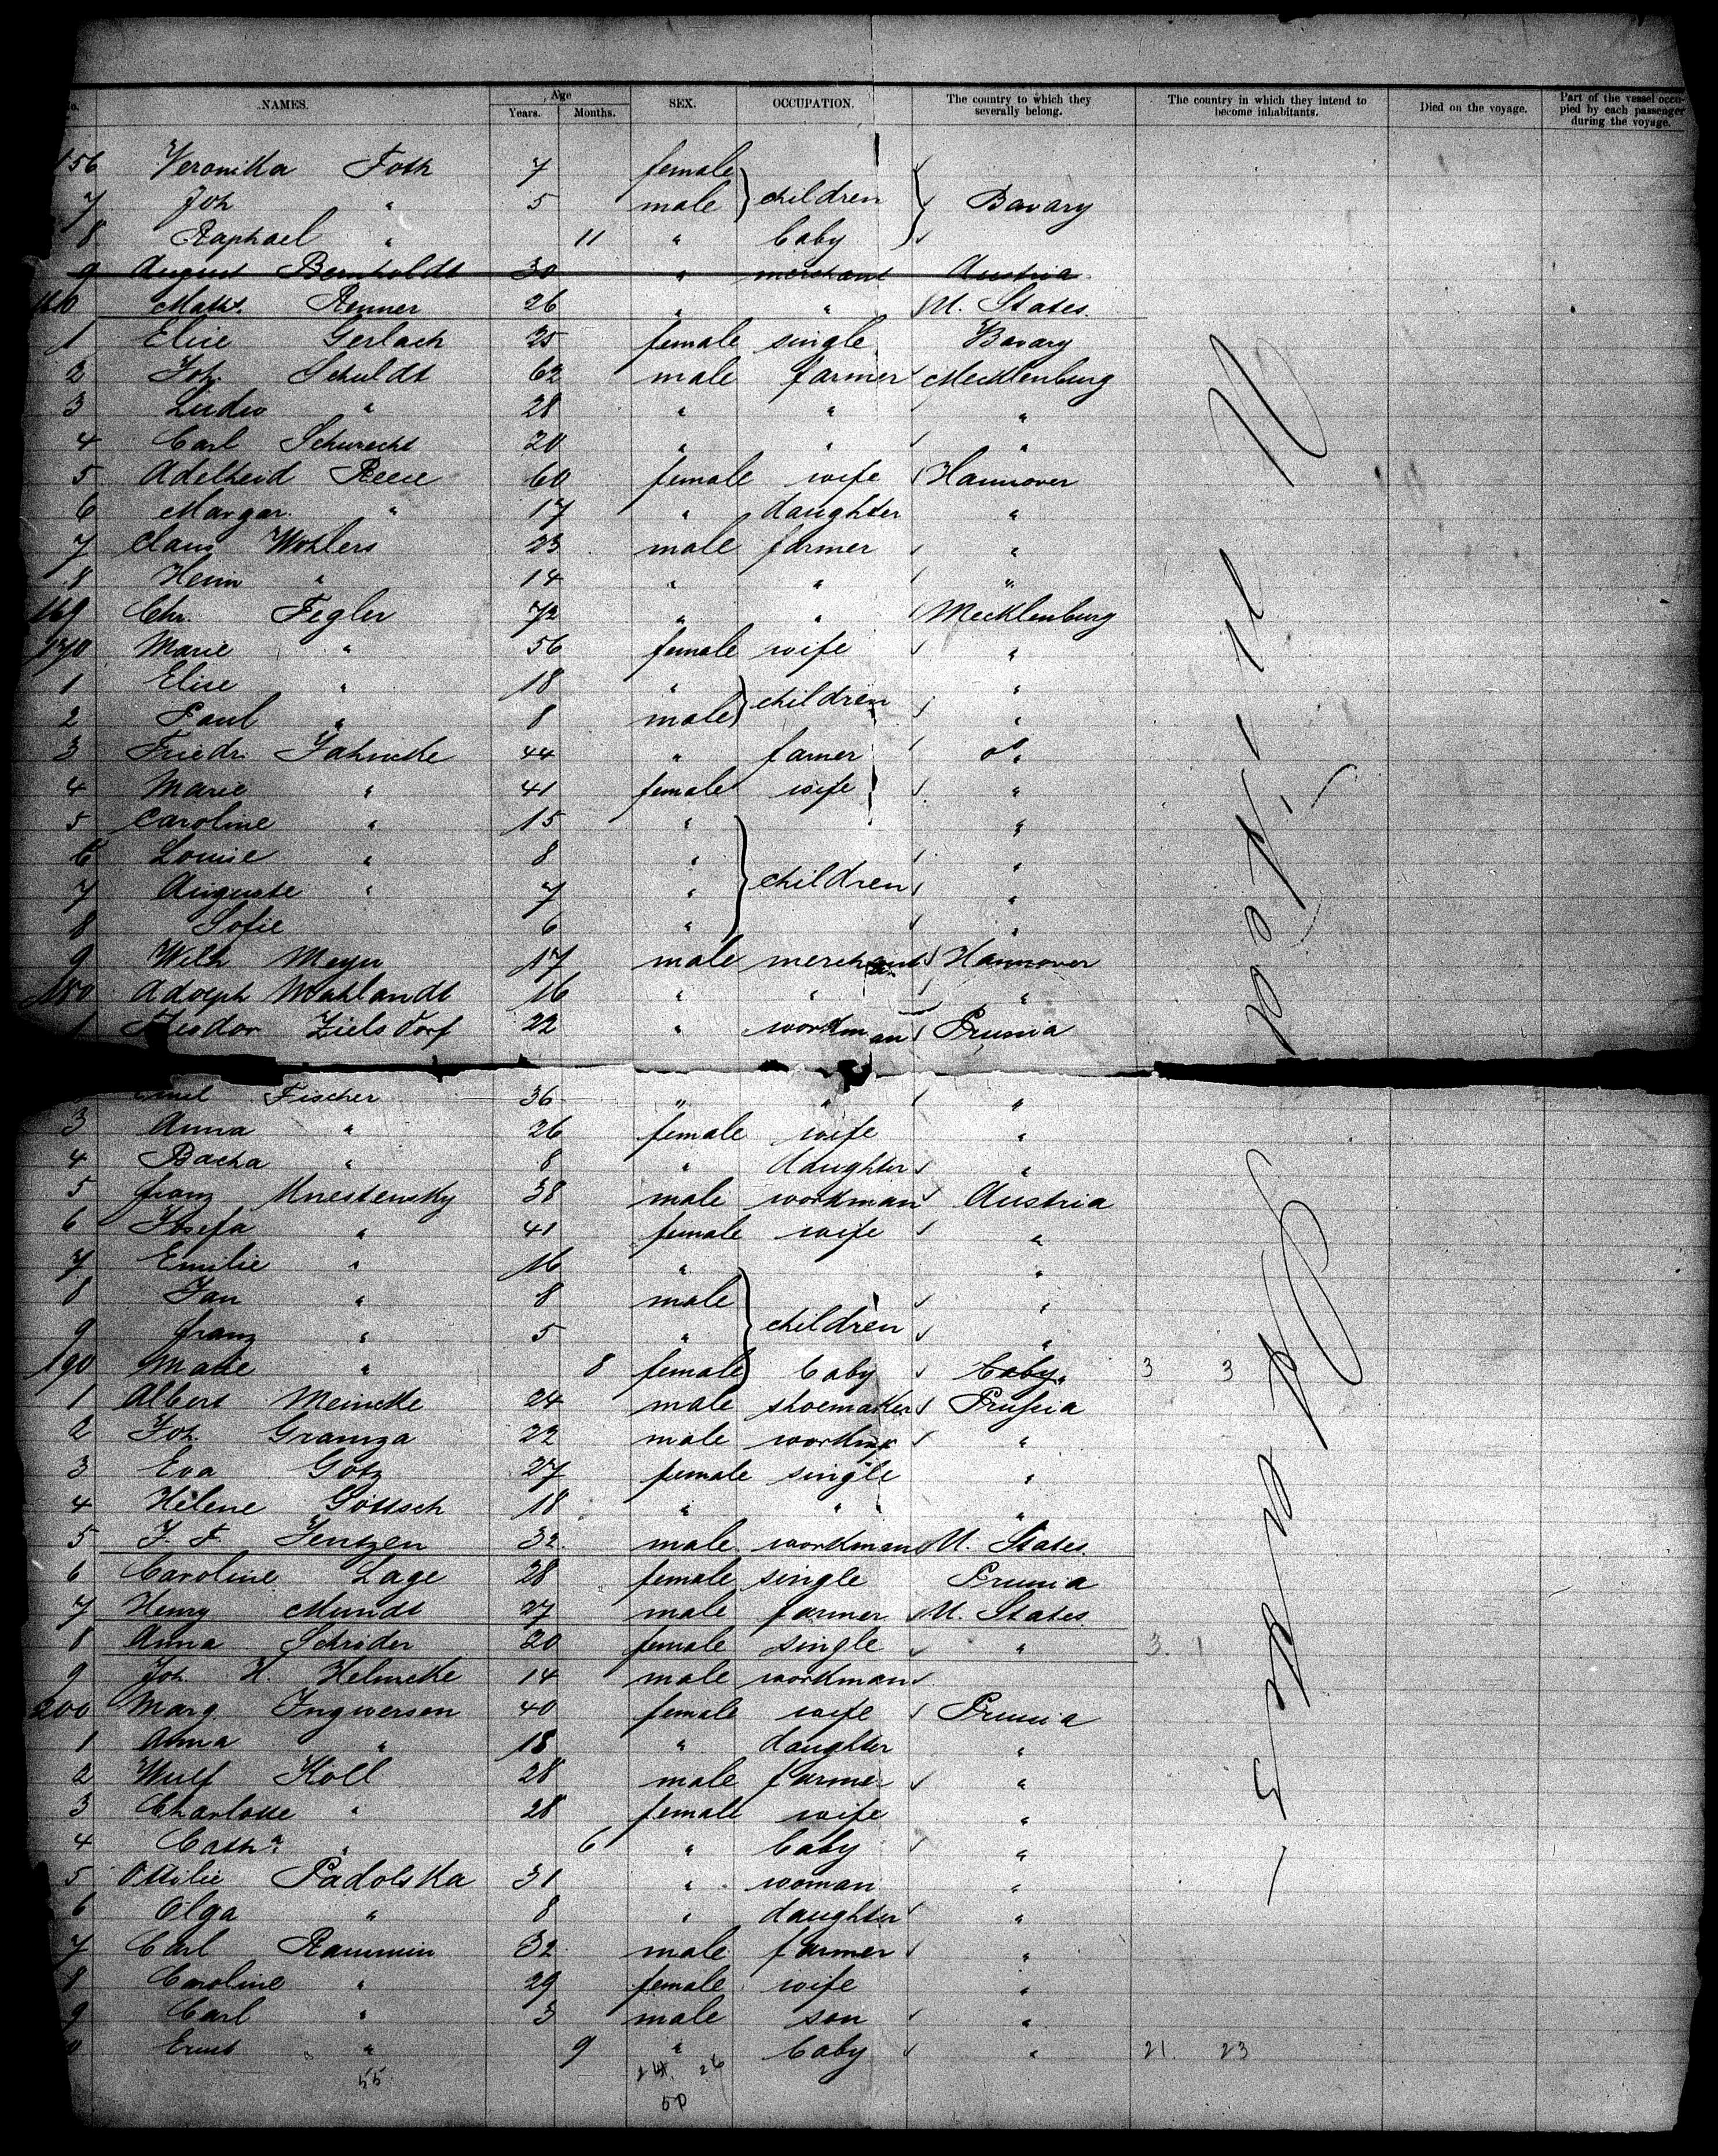 No. NAMES. Age Years. Months. SEX. OCCUPATION. The country to which they severally belong. The country in which they intend to become inhabitants. Died on the voyage. Part of the vessel occupied by each passenger during the voyage.
156 Veronika Foth 7 female
7 Joh " 5 male children Bavary
8 Raphael " 11 " baby
9 August Bernholdt 30 " merchant Austria
160 Math. Renner 26 " " U. States.
1 Elise Gerlach 25 female single Bavary
2 Joh. Schuldt 62 male farmer Mecklenburg
3 Ludw " 28 " " "
4 Carl Schurecht 20 " " "
5 Adelheid Reese 60 female wife Hannover
6 Margar. " 17 " daughter "
7 Claus Wohlers 23 male farmer "
8 Heinr " 14 " " "
169 Chr. Fegler 72 " " Mecklenburg
170 Marie " 56 female wife "
1 Elise " 18 " "
2 Paul " 8 male children "
3 Friedr. Jahncke 44 " famer "
4 Marie " 41 female wife "
5 Caroline " 15 " "
6 Louise " 8 " "
7 Auguste " 7 " children "
8 Sofie 6 " "
9 Wilh Meyer 17 male merchant Hannover
180 Adolph Wahlandt 16 " " "
1 Zielsdorf 22 " workman Prussia
Fischer 36 " " "
3 Anna " 26 female wife "
4 Bacha " 8 " daughter "
5 Franz Mnestensky 38 male workman Austria
6 Josefa " 41 female wife "
7 Emilie " 16 " "
8 Jan " 8 male "
9 Franz " 5 " children "
190 Marie " 8 female baby baby " 3 3
1 Albert Meincke 24 male shoemaker Prussia
2 Joh. Gramza 22 male workman "
3 Eva Götz 27 female single "
4 Helene Göttsch 18 " " "
5 J. F. Jentzen 32 male workman U. States.
6 Caroline Lage 28 female single Prussia
7 Henry Mundt 27 male farmer U. States.
8 Anna Schröder 20 female single " 3. 1
9 Joh. H. Helmcke 14 male workman
200 Marg. Ingwersen 40 female wife Prussia
1 Anna " 18 " daughter "
2 Wulf Koll 28 male farmer "
3 Charlotte " 28 female wife "
4 Cath.a " 6 " baby "
5 Ottilie Padolska 31 " woman "
6 Olga " 8 " daughter "
7 Carl Rammin 32 male farmer "
8 Caroline " 29 female wife "
9 Carl " 3 male son "
0 Ernst " 9 " baby " 21. 23
55 24. 26
50